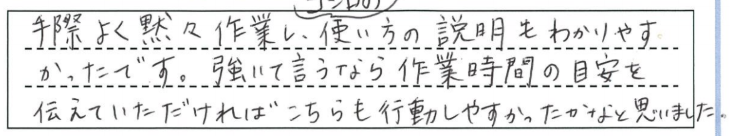 手際よく黙々作業し、使い方の説明もわかりやす
かったです。強いて言うなら作業時間の目安を
伝えていただければこちらも行動しやすかったかなと思いました。